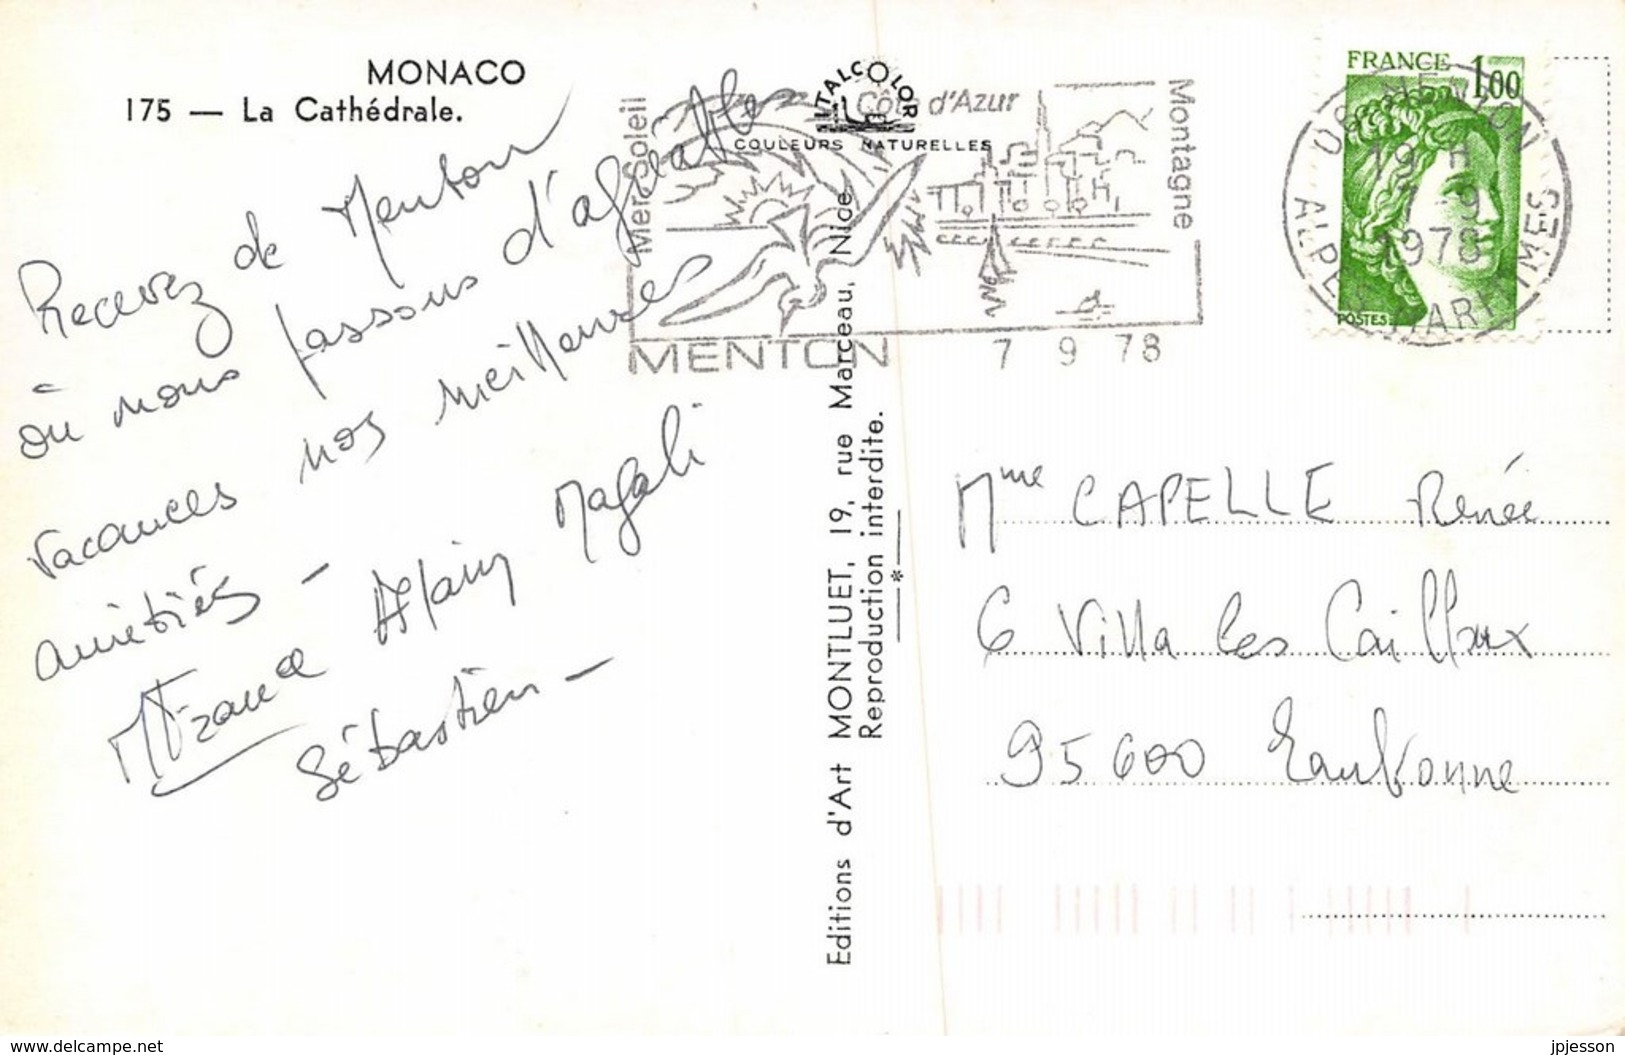 MONACO
175 — La Cathédrale.
Recevez de Menton
où nous passons d'agréables
vacances nos meilleures
amitiés —
France Alain Magali
Sébastien —
ITALCOLOR
COULEURS NATURELLES
Mer Soleil
Côte d'Azur
Montagne
MENTON 7 9 78
Editions d'Art MONTLUET, 19, rue Marceau, Nice.
Reproduction interdite.
*
FRANCE 1,00
POSTES
06 MENTON
19 H
7-9
1978
ALPES MARITIMES
Mme CAPELLE Renée
6 Villa les Cailloux
95600 Eaubonne
www.delcampe.net
jpjesson